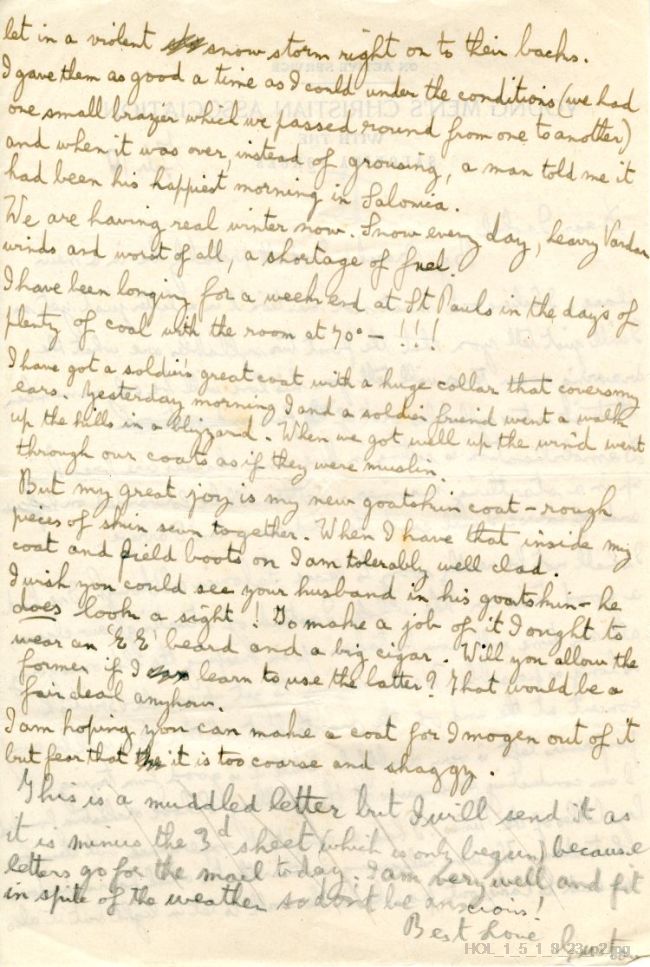 let in a violent snow storm right on to their backs.
I gave them as good a time as I could under the conditions (we had
one small brazier which we passed round from one to another)
and when it was over, instead of grousing, a man told me it
had been his happiest morning in Salonica.
We are having real winter now. Snow every day, heavy Vardar
winds and worst of all, a shortage of fuel.
I have been longing for a week end at St Pauls in the days of
plenty of coal with the room at 70° — !!!
I have got a soldier's great coat with a huge collar that covers my
ears. Yesterday morning I and a soldier friend went a walk
up the hills in a blizzard. When we got well up the wind went
through our coats as if they were muslin.
But my great joy is my new goatskin coat – rough
pieces of skin sewn together. When I have that inside my
coat and field boots on I am tolerably well clad.
I wish you could see your husband in his goatskin – he
does look a sight! To make a job of it I ought to
wear an 'E E' beard and a big cigar. Will you allow the
former if I learn to use the latter? That would be a
fair deal anyhow.
I am hoping you can make a coat for Imogen out of it
but fear that it is too coarse and shaggy.
This is a muddled letter but I will send it as
it is minus the 3d sheet (which is only begun) because
letters go for the mail today. I am very well and fit
in spite of the weather so don't be anxious!
Best Love Gusta
HOL_1_5_1_8_23_p2.jpg
ON ACTIVE SERVICE
YOUNG MEN'S CHRISTIAN ASSOCIATION
WITH THE